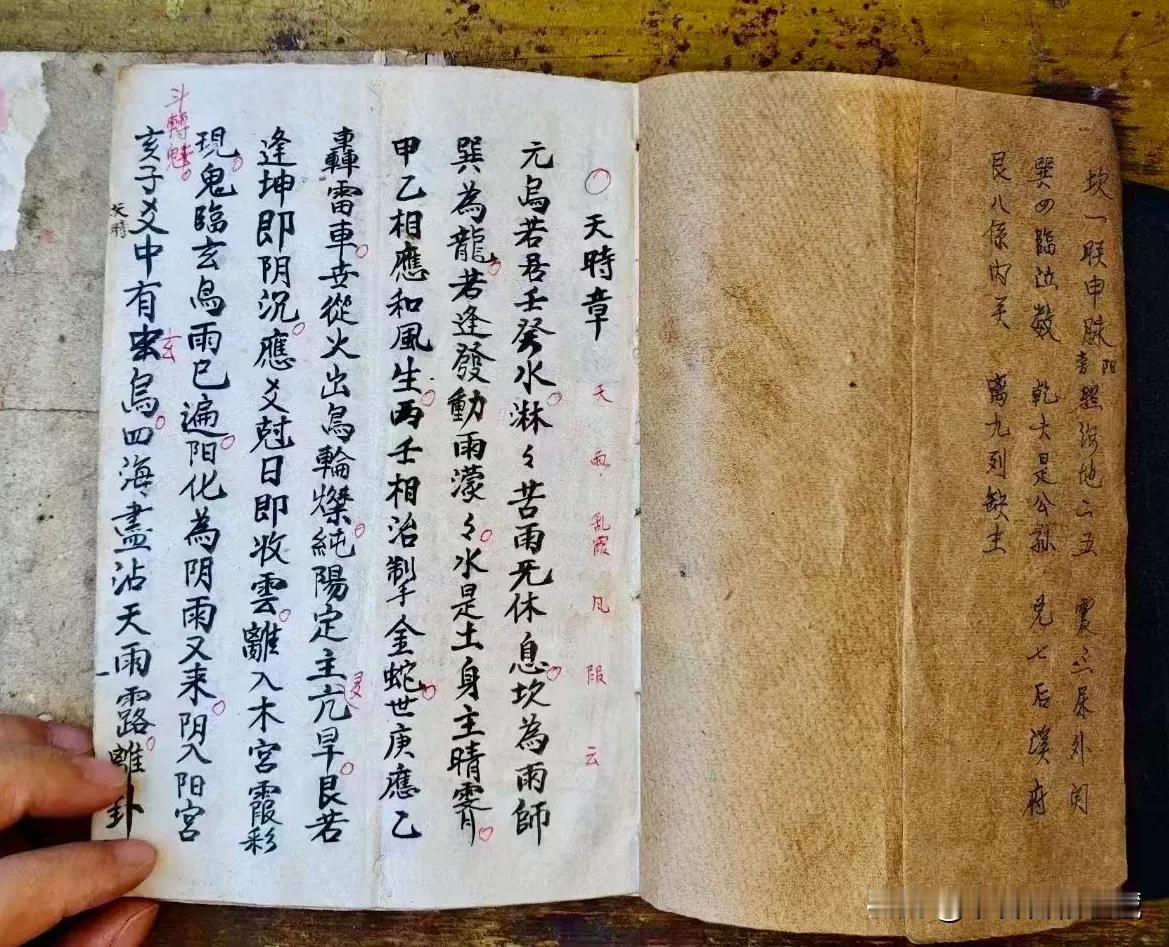 坎一联申脉阳 照海地二五 震三屎外
巽四臨泣數 乾六是公孫 兑七后溪府
艮八係内关 离九列缺主
〇天時章
天 雨 乱霞 凡 服 云
元烏若君壬癸水淋々苦雨旡休息坎為雨師
巽為龍若逢發動雨濛々水是土身主晴霽
甲乙相應和風生丙壬相治制手金蛇世庚應乙
轟雷車世從火出烏輪燦純陽定主亢旱艮若
逢坤即阴沉應爻尅日即收雲離入木宮霞彩
現鬼臨玄烏雨已遍阳化為阴雨又来阴入阳宮
亥子爻中有玄烏四海盡沾天雨露離卦
斗轉魁
天時